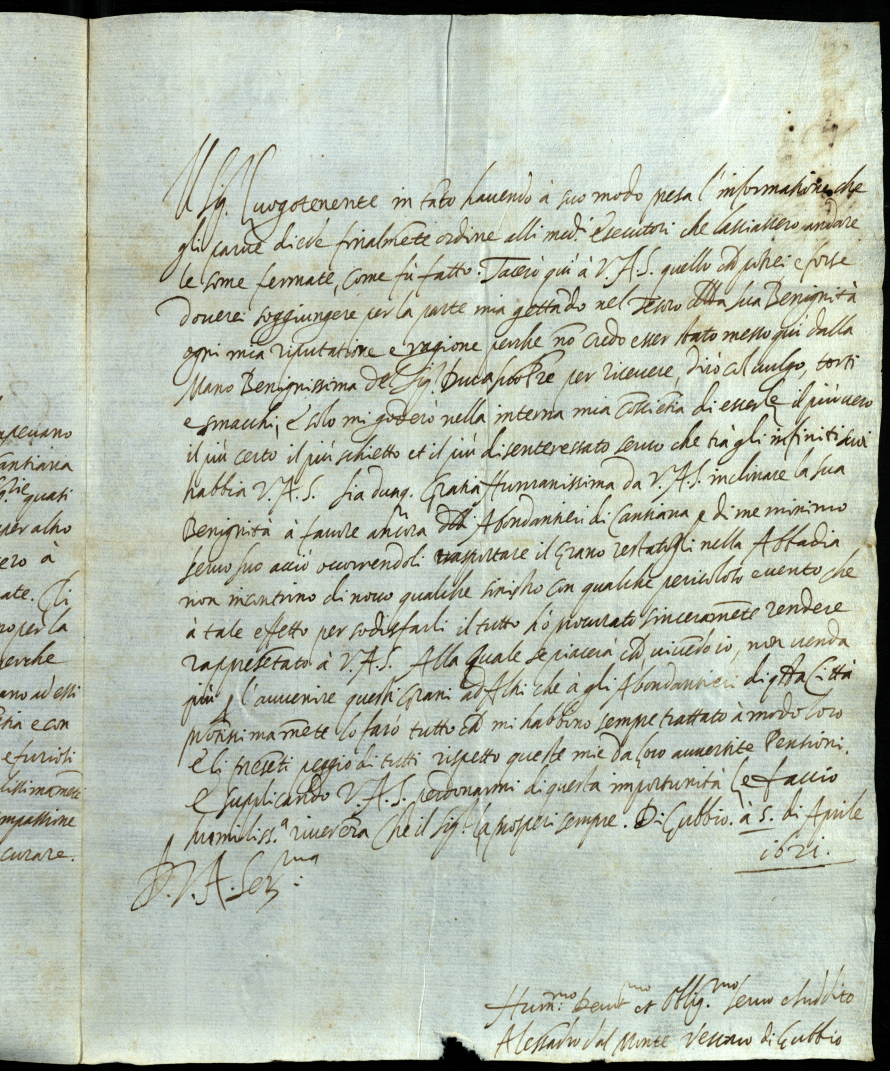 mpevano
antiana
quasi
per altro
ero à
ate. Gli
no per la
perche
ano ad essi
stia e con
e furiosi
mpassione
curare.
Il Sig.r Luogotenente in tãto havendo à suo modo presa l'informatione che
gli parve diede finalmẽte ordine alli med.i Esecutori che lassiassero andare
le some fermate, come fù fatto. Tacerò qui à V.A.S. quello ch potrei e forse
doverei soggiungere per la parte mia gettãdo nel Tesoro della sua Benignità
ogni mia riputatione e ragione perche nõ credo esser stato messo qui dalla
Mano Benignissima del Sig.r Duca per ricevere, dirò col vulgo, torti
e smacchi, e solo mi goderò nella interna mia cõscieñtia di esserle il più vero
il più certo il più schietto et il più disenteressato servo che trà gli infiniti suoi
habbia V.A.S. Sia dunq. Gratia Humanissima da V.A.S. inclinare la sua
Benignità à favore ancora delli Abondantieri di Cantiana e di me minimo
servo suo acciò occorrendoli trasportare il Grano restatogli nella Abbadia
non incontrino di novo qualche sinistro con qualche pericoloso evento che
à tale effetto per sodisfarli il tutto hò procurato sinceramẽte rendere
rappresẽtato à V.A.S. Alla quale se piacerà ch vivẽdo io, non venda
più p l'avvenire questi Grani ad Altri che à gli Abondantieri di qsta Città
prõtissimamẽte lo farò tutto ch mi habbino sempre trattato à modo loro
e li presẽti peggio di tutti rispetto queste mie da loro avvertite Pensioni.
E supplicando V.A.S. perdonarmi di questa importunità le faccio
humiliss.a riverẽza che il Sig.r la prosperi sempre. Di Gubbio. à 5. di Aprile
1621.
D. V. A. Ser.ma
Hum.mo Devot.mo et Oblig.mo servo e suddito
Alessãdro dal Monte Vescovo di Gubbio